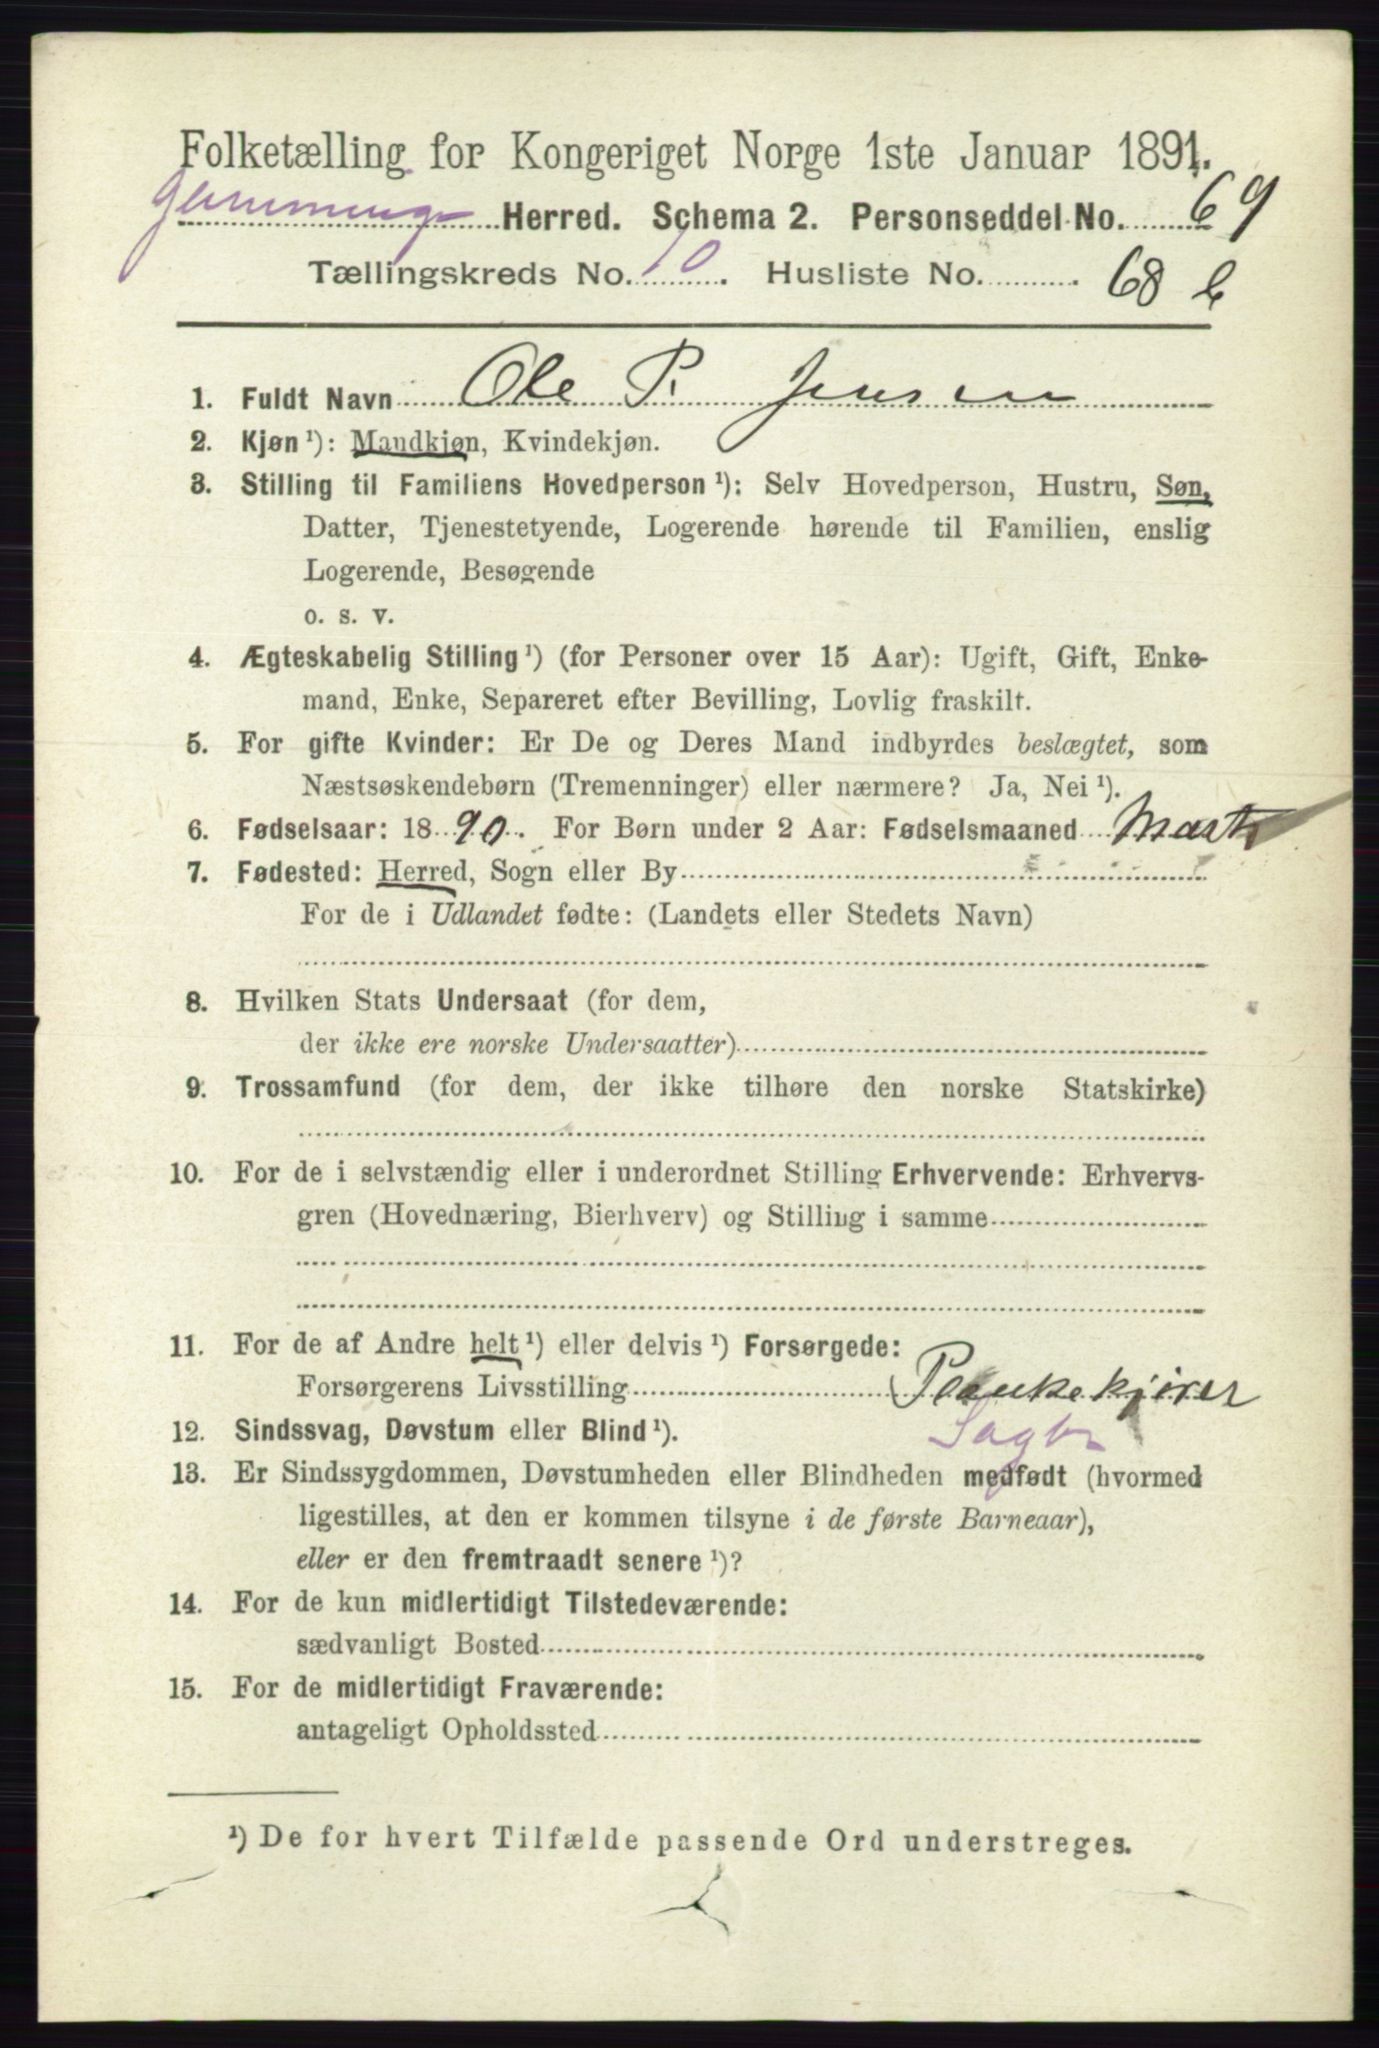 Folketælling for Kongeriget Norge 1ste Januar 1891.
Glemminge Herred. Schema 2. Personseddel No. 69
Tællingskreds No. 10. Husliste No. 68 b
1. Fuldt Navn Ole P. Jensen
2. Kjøn ¹): Mandkjøn, Kvindekjøn.
3. Stilling til Familiens Hovedperson ¹): Selv Hovedperson, Hustru, Søn,
Datter, Tjenestetyende, Logerende hørende til Familien, enslig
Logerende, Besøgende
o. s. v.
4. Ægteskabelig Stilling ¹) (for Personer over 15 Aar): Ugift, Gift, Enke-
mand, Enke, Separeret efter Bevilling, Lovlig fraskilt.
5. For gifte Kvinder: Er De og Deres Mand indbyrdes beslægtet, som
Næstsøskendebørn (Tremenninger) eller nærmere? Ja, Nei ¹).
6. Fødselsaar: 1890. For Børn under 2 Aar: Fødselsmaaned Marts
7. Fødested: Herred, Sogn eller By
For de i Udlandet fødte: (Landets eller Stedets Navn)
8. Hvilken Stats Undersaat (for dem,
der ikke ere norske Undersaatter)
9. Trossamfund (for dem, der ikke tilhøre den norske Statskirke)
10. For de i selvstændig eller i underordnet Stilling Erhvervende: Erhvervs-
gren (Hovednæring, Bierhverv) og Stilling i samme
11. For de af Andre helt ¹) eller delvis ¹) Forsørgede:
Forsørgerens Livsstilling Plankekjører
Sagbr
12. Sindssvag, Døvstum eller Blind ¹).
13. Er Sindssygdommen, Døvstumheden eller Blindheden medfødt (hvormed
ligestilles, at den er kommen tilsyne i de første Barneaar),
eller er den fremtraadt senere ¹)?
14. For de kun midlertidigt Tilstedeværende:
sædvanligt Bosted
15. For de midlertidigt Fraværende:
antageligt Opholdssted
¹) De for hvert Tilfælde passende Ord understreges.